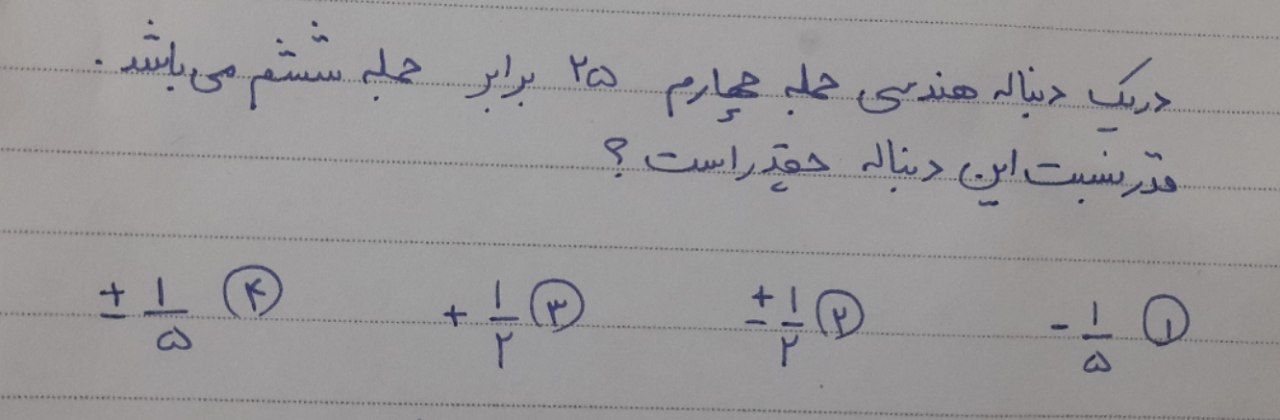 در یک دنباله هندسی جمله چهارم ۲۵ برابر جمله ششم می باشد.
قدر نسبت این دنباله چقدر است؟
۱) -۱/۵ ۲) ±۱/۲ ۳) +۱/۲ ۴) ±۱/۵